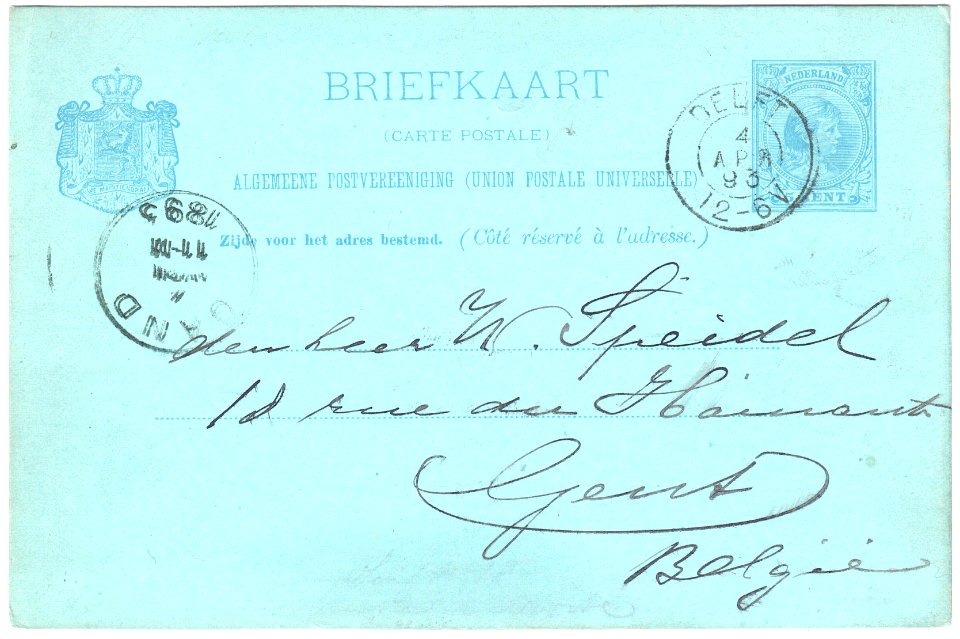 BRIEFKAART
(CARTE POSTALE)
ALGEMEENE POSTVEREENIGING (UNION POSTALE UNIVERSELLE)
Zijde voor het adres bestemd. (Côté réservé à l'adresse.)
NEDERLAND
CENT
DELFT
4
APR
93
12-6V
GAND
1893
den heer W. Speidel
rue du Hainaut
Gent
België